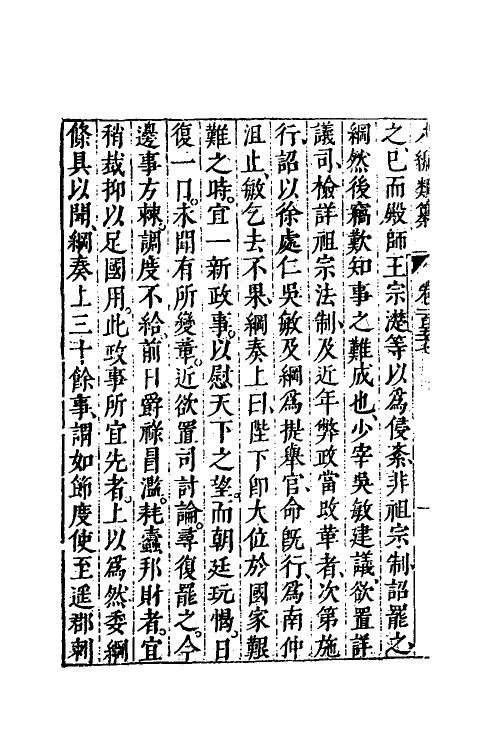 八編類纂 卷一百
之已而殿師王宗濋等以爲侵紊非祖宗制詔罷之
綱然後竊歎知事之難成也、少宰吳敏建議、欲置詳
議司、檢詳祖宗法制、及近年弊政當改革者、次第施
行、詔以徐處仁吳敏及綱爲提舉官、命既行、爲南仲
沮止、敏乞去不果、綱奏上曰、陛下卽大位於國家艱
難之時。宜一新政事。以慰天下之望。而朝廷玩愒。日
復一日。未聞有所變革。近欲置司討論。尋復罷之。今
邊事方棘。調度不給。前日爵祿冒濫。耗蠹邦財者。宜
稍裁抑以足國用。此政事所宜先者。上以爲然委綱
條具以聞、綱奏上三十餘事、謂如節度使至遥郡刺